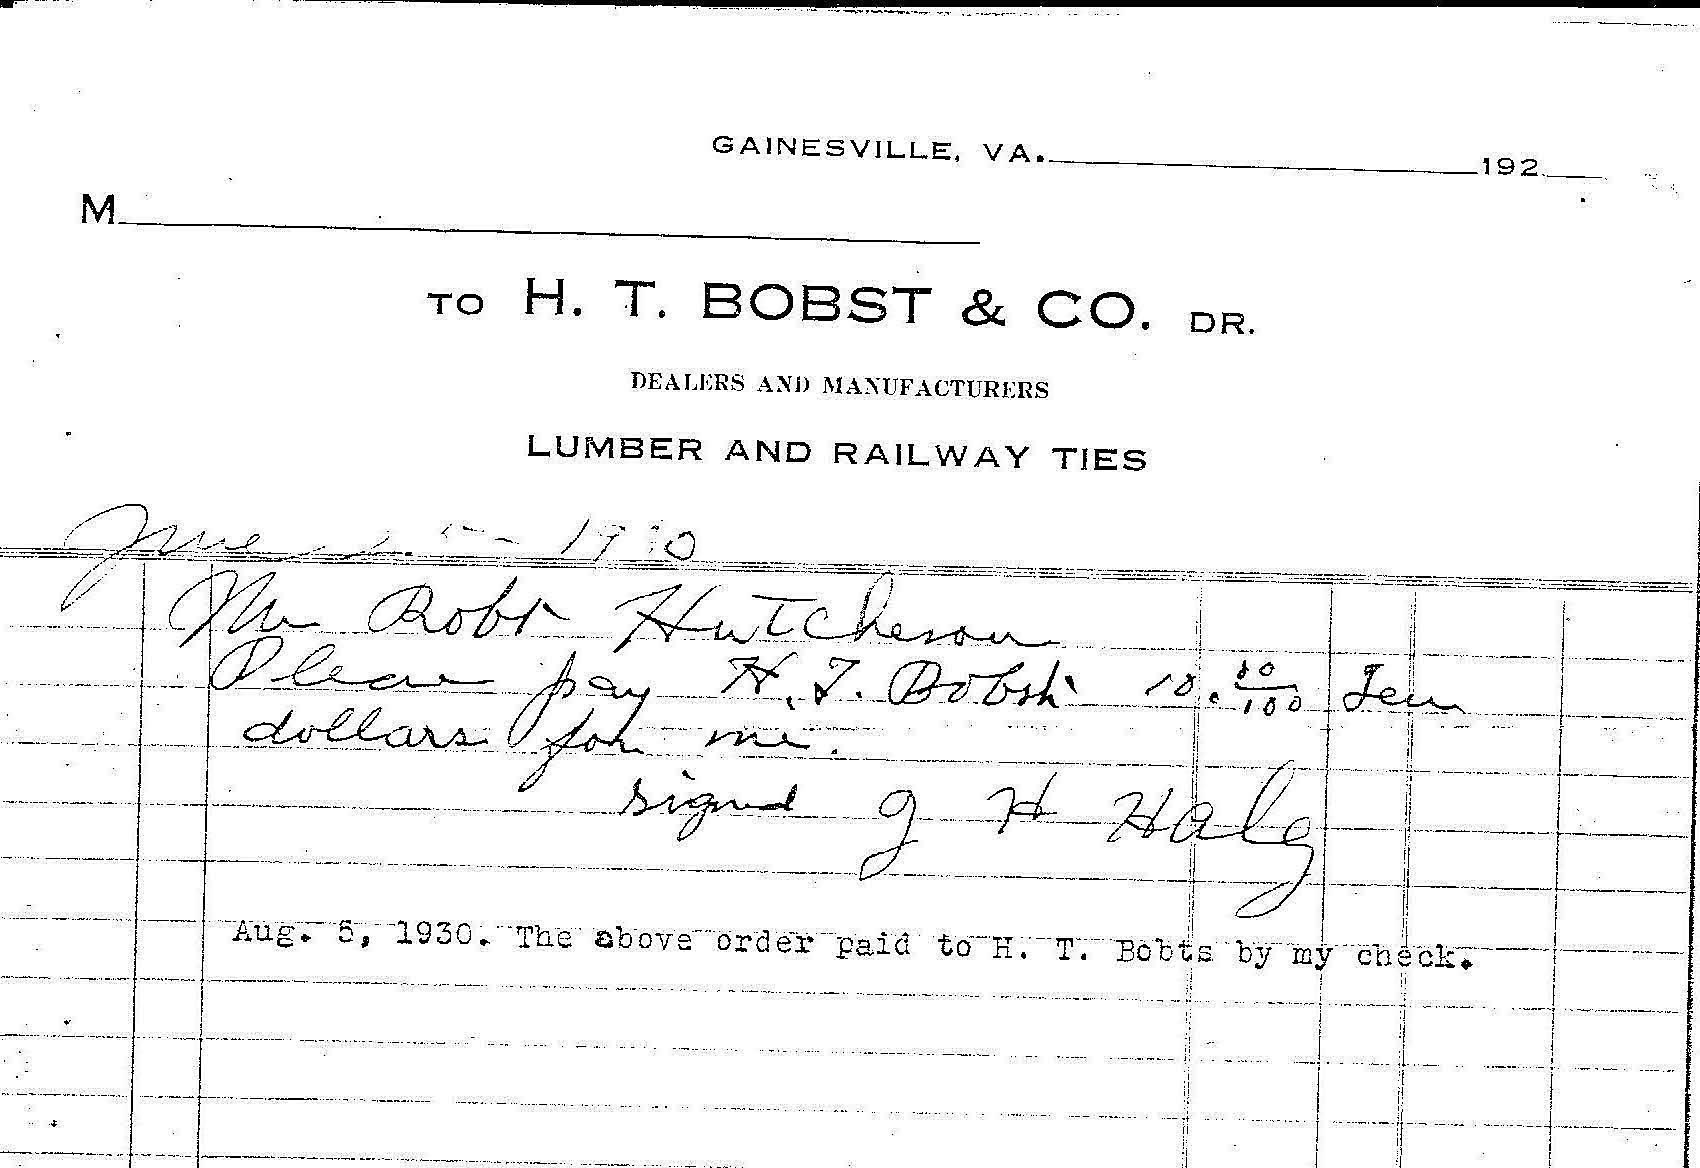 GAINESVILLE, VA. 192
M
TO H. T. BOBST & CO. DR.
DEALERS AND MANUFACTURERS
LUMBER AND RAILWAY TIES
June 1930
Mr Robt Hutcheson
Please pay H. T. Bobst 10.00/100 Ten
dollars for me.
signed J H Haley
Aug. 5, 1930. The above order paid to H. T. Bobts by my check.